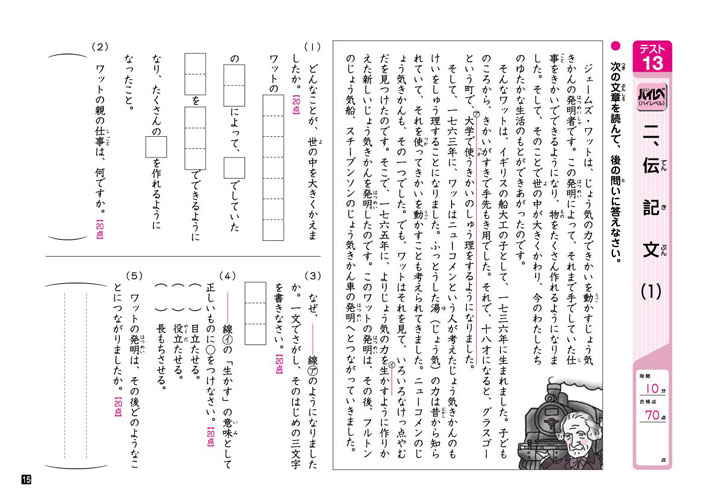 テスト
13
ハイレベ
(ハイレベル)
二、伝記文(1)
でん き ぶん
時間
10分
合格点
70点
点
● 次の文章を読んで、後の問いに答えなさい。
ジェームズ・ワットは、じょう気の力できかいを動かすじょう気
きかんの発明者です。この発明によって、それまで手でしていた仕
事をきかいでできるようになり、物をたくさん作れるようになりま
した。そして、そのことで世の中が大きくかわり、今のわたしたち
のゆたかな生活のもとができあがったのです。
そんなワットは、イギリスの船大工の子として、一七三六年に生まれました。子ども
のころから、きかいがすきで手先も器用でした。それで、十八才になると、グラスゴー
という町で、大学で使うきかいのしゅう理をするようになりました。
そして、一七六三年に、ワットはニューコメンという人が考えたじょう気きかんのも
けいをしゅう理することになりました。ふっとうした湯(じょう気)の力は昔から知ら
れていて、それを使ってきかいを動かすことも考えられてきました。ニューコメンのじ
ょう気きかんも、その一つでした。でも、ワットはそれを見て、いろいろなけっ点やむ
だを見つけたのです。そこで、一七六五年に、よりじょう気の力を生かすように作りか
えた新しいじょう気きかんを発明したのです。このワットの発明は、その後、フルトン
のじょう気船、スチーブンソンのじょう気きかん車の発明へとつながっていきました。
(1) どんなことが、世の中を大きくかえま
したか。【20点】
ワットの
の
によって、
でしていた
を
でできるように
なり、たくさんの
を作れるように
なったこと。
(2) ワットの親の仕事は、何ですか。【20点】
(3) なぜ、――線㋐のようになりました
か。一文でさがし、そのはじめの三文字
を書きなさい。【20点】
(4) ――線㋑の「生かす」の意味として
正しいものに○をつけなさい。【20点】
( ) 目立たせる。
( ) 役立たせる。
( ) 長もちさせる。
(5) ワットの発明は、その後どのようなこ
とにつながりましたか。【20点】
15